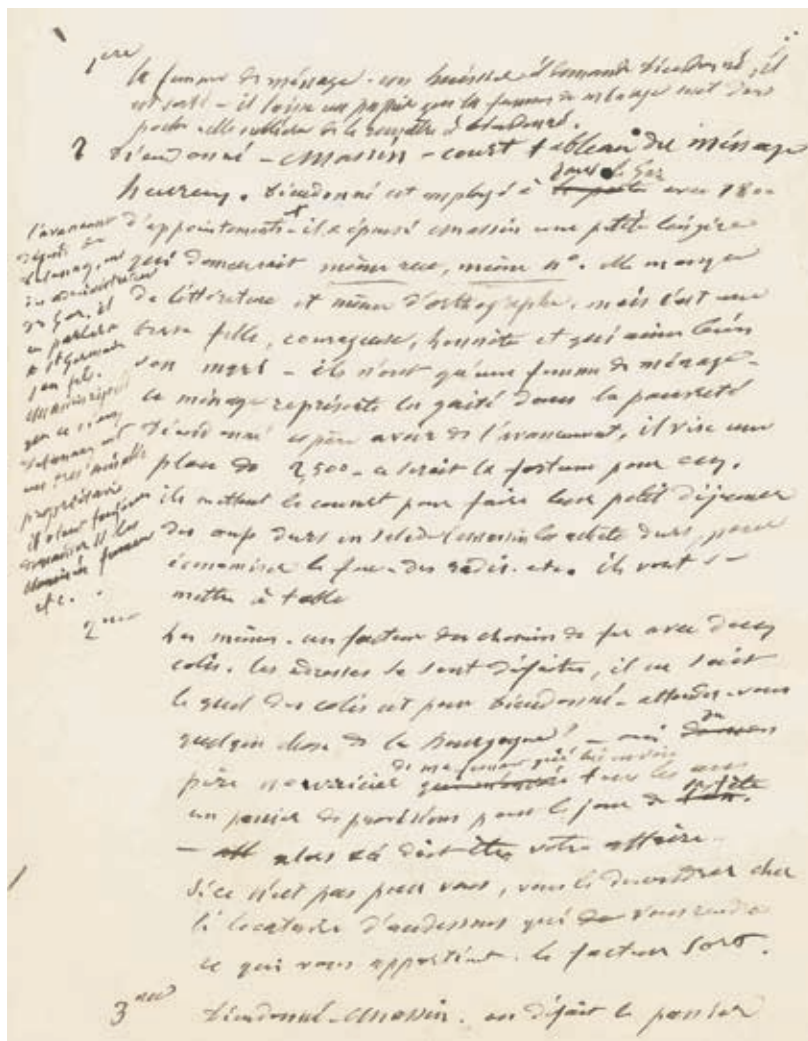 1ere
la femme de ménage. un huissier demande Dieudonné, il
est sorti - il laisse un papier que la femme de ménage met dans
poche elle oubliera de le remettre à Dieudonné.
2 Dieudonné - - court tableau du ménage
heureux. Dieudonné est employé à le gaz avec 1800
d'appointements - il a épousé une petite lingère
qui demeurait même rue, même n°. elle manque
de littérature et même d'orthographe. mais c'est une
bonne fille, courageuse, honnête et qui aime bien
son mari - ils n'ont qu'une femme de ménage -
ce ménage représente la gaité dans la pauvreté
Dieudonné espère avoir de l'avancement, il vise une
place de 2,500 - ce serait la fortune pour eux.
ils mettent le couvert pour faire leur petit déjeuner
des œufs durs en salade les achète durs, pour
économiser le feu - des radis. etc. ils vont se
mettre à table
l'avancement
dépend de
du
de Gaz, il
en parlera
à St Germain
son
que ce
est
une
propriétaire
il veut toujours
les
cheminées fument
etc.
2me
Les mêmes. un facteur du chemin de fer avec deux
colis. les adresses se sont défaites, il ne sait
lequel des colis est pour Dieudonné - attendez-vous
quelque chose de la Bourgogne? - oui du
père nourricier de ma femme qui lui envoie tous les ans
un panier de provisions pour le jour de sa fête
- alors ça doit être votre affaire
Si ce n'est pas pour vous, vous le descendrez chez
le locataire d'audessous qui vous rendra
ce qui vous appartient. le facteur sort.
3me
Dieudonné - . on défait le panier